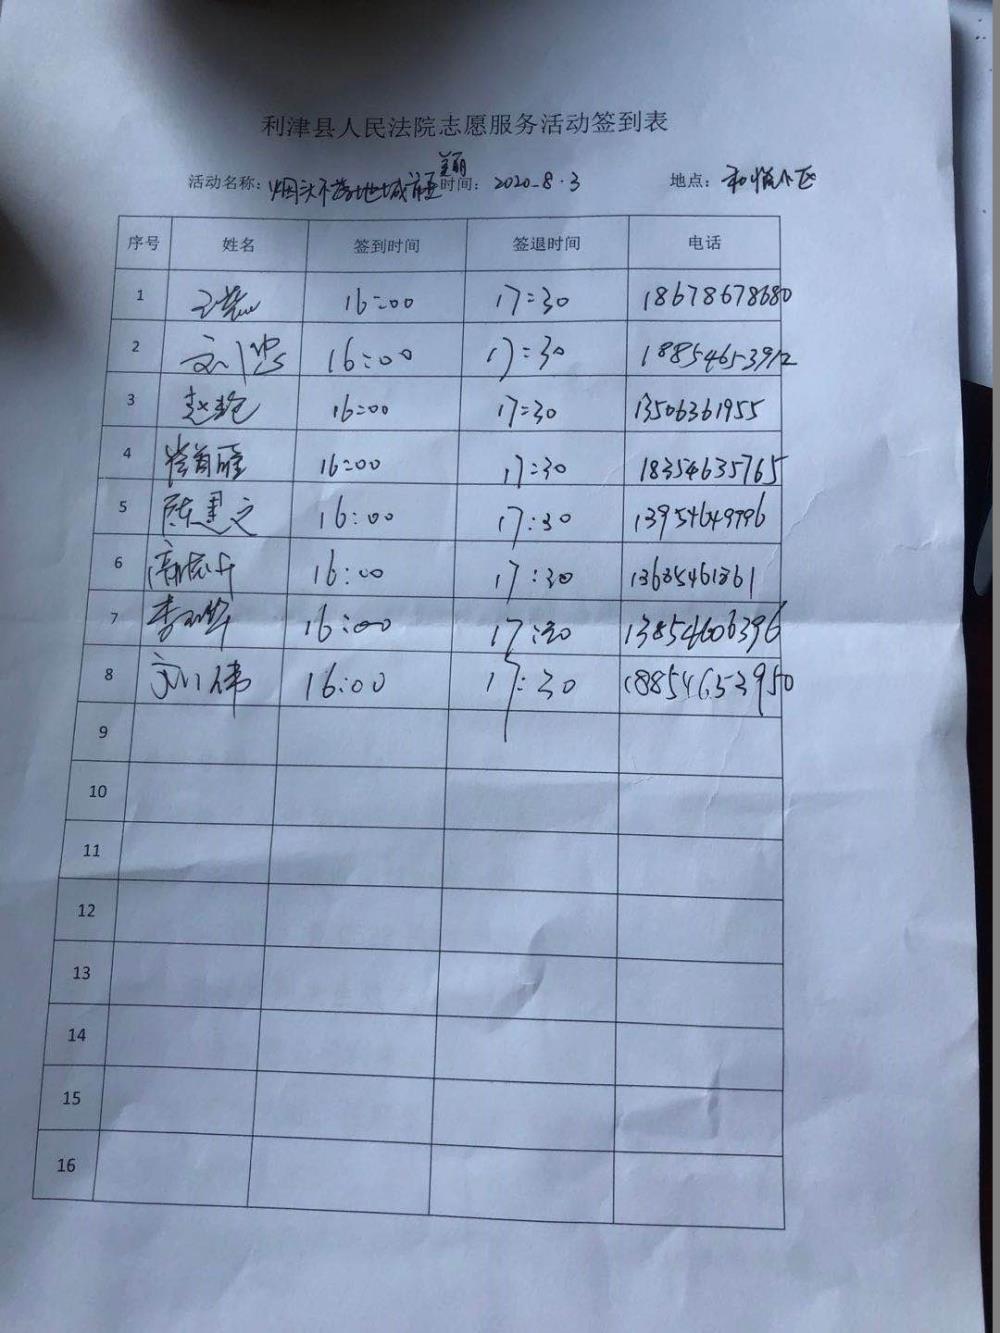 利津县人民法院志愿服务活动签到表
活动名称：烟头不落地城市更美丽 时间：2020-8·3 地点：和谐小区
序号 姓名 签到时间 签退时间 电话
1 16:00 17:30 18678678680
2 刘忠 16:00 17:30 18854653912
3 赵艳 16:00 17:30 13506361955
4 16:00 17:30 18354635765
5 陈建文 16:00 17:30 13954649796
6 16:00 17:30
7 16:00 17:30 13854606396
8 刘伟 16:00 17:30 18854653950
9
10
11
12
13
14
15
16